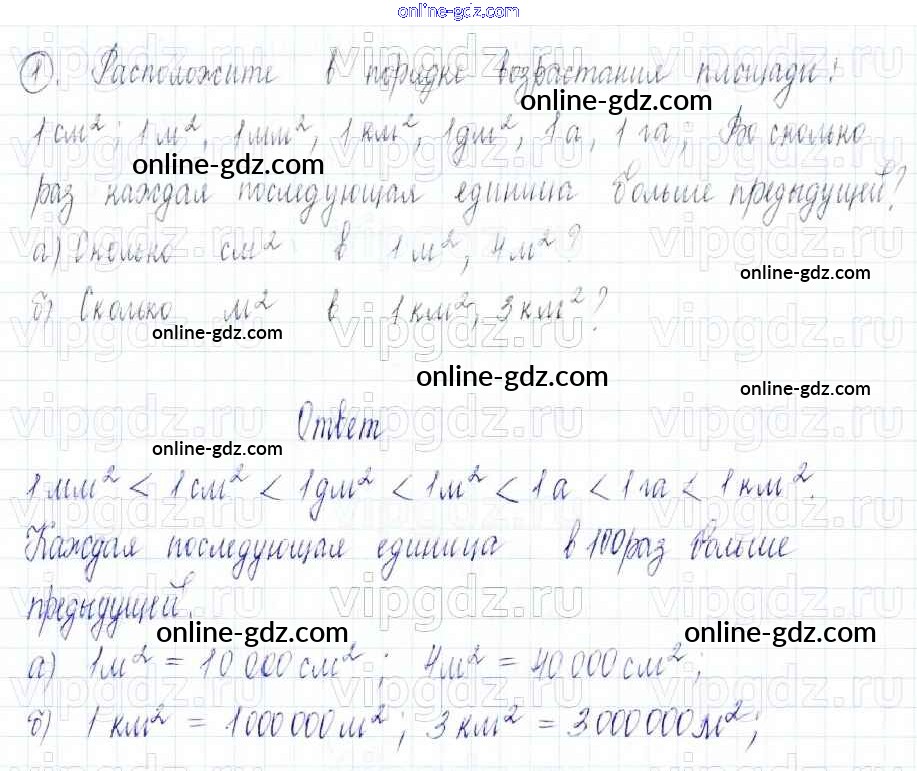 online-gdz.com
1. Расположите в порядке возрастания площади:
online-gdz.com
1 см², 1 м², 1 мм², 1 км², 1 дм², 1 а, 1 га; Во сколько
online-gdz.com
раз каждая последующая единица больше предыдущей?
а) Сколько см² в 1 м², 4 м²?
online-gdz.com
б) Сколько м² в 1 км², 3 км²?
online-gdz.com
online-gdz.com
online-gdz.com
Ответ
online-gdz.com
1 мм² < 1 см² < 1 дм² < 1 м² < 1 а < 1 га < 1 км².
Каждая последующая единица в 100 раз больше
предыдущей.
online-gdz.com
online-gdz.com
а) 1 м² = 10 000 см² ; 4 м² = 40 000 см²;
б) 1 км² = 1 000 000 м²; 3 км² = 3 000 000 м²;
vipgdz.ru